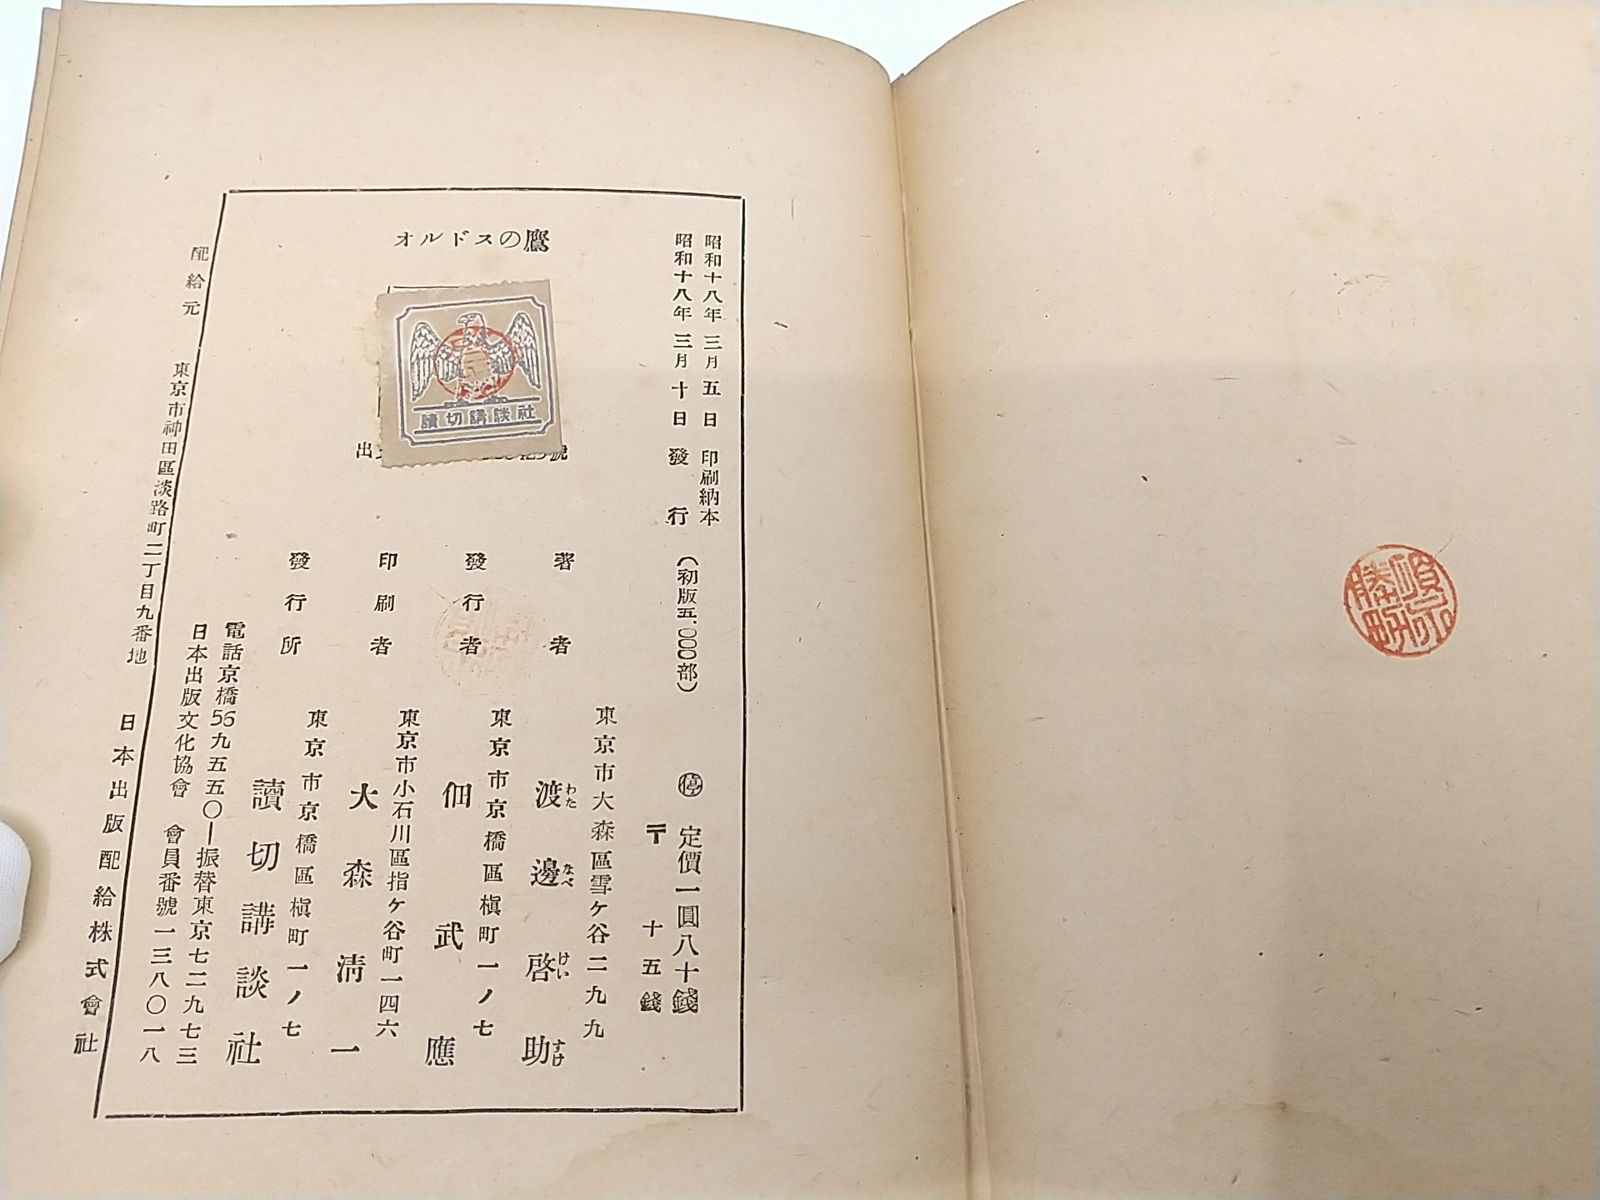 昭和十八年三月五日印刷納本
昭和十八年三月十日發行
（初版五、〇〇〇部）
停 定價一圓八十錢
〒 十五錢
オルドスの鷹
讀切講談社
出
號
著者
東京市大森區雪ケ谷二九九
渡邊啓助
わたなべけいすけ
發行者
東京市京橋區槇町一ノ七
佃武應
印刷者
東京市小石川區指ケ谷町一四六
大森淸一
發行所
東京市京橋區槇町一ノ七
讀切講談社
電話京橋56九五五〇ー振替東京七二九七三
日本出版文化協會 會員番號一三八〇一八
配給元 東京市神田區淡路町二丁目九番地 日本出版配給株式會社